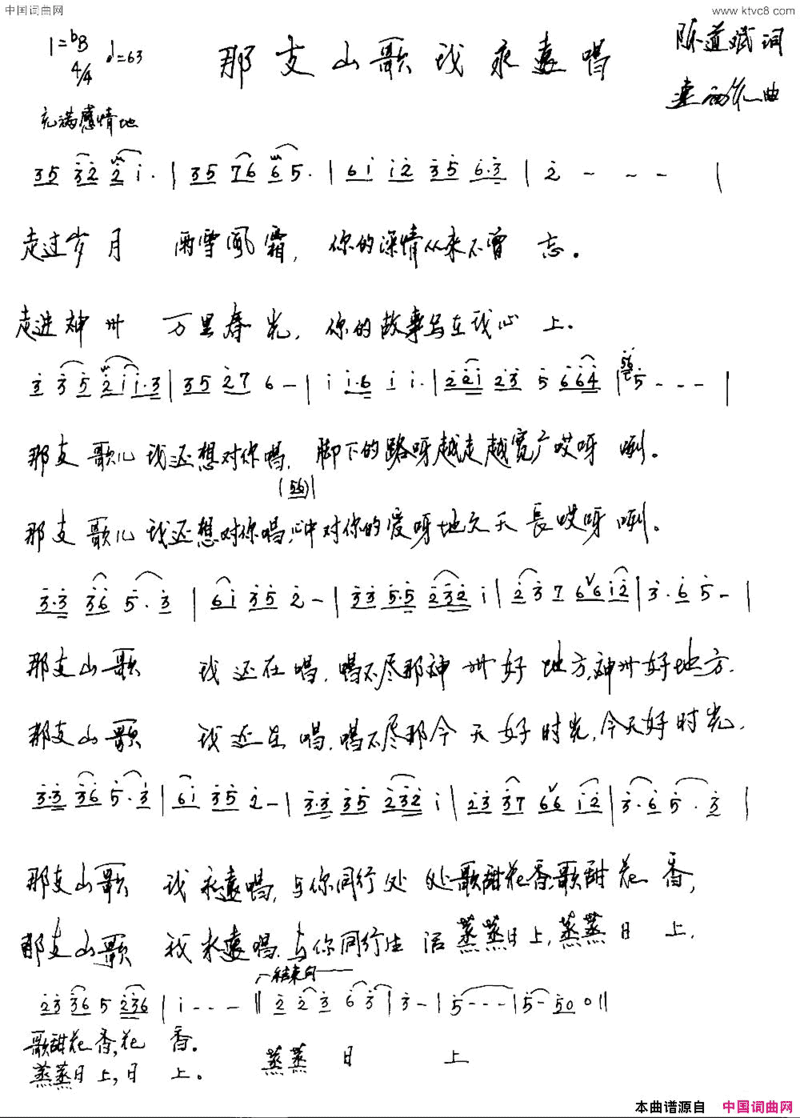 中国词曲网
www.ktvc8.com
1=bB 4/4 =63
那支山歌我永遠唱
陈道斌词
曲
充满感情地
35 32 2 1. | 35 76 6 5. | 61 12 35 6.3 | 2 - - - |
走过岁月 雨雪風霜，你的深情从来不曾 忘。
走进神州 万里春光，你的故事写在我心 上.
3 35 211.3 | 35 27 6 - | 1 1.6 1 1. | 221 23 5 664 | 5 - - - |
那支歌儿我还想对你唱，脚下的路呀越走越宽广哎呀 咧。
(56)
那支歌儿我还想对你唱，心中对你的爱呀地久天長哎呀咧。
3.3 36 5.3 | 61 35 2 - | 33 5.5 232 1 | 23 7 6612 | 3.6 5 - |
那支山歌 我还在唱，唱不尽那神州好地方，神州好地方.
那支山歌 我还在唱，唱不尽那今天好时光，今天好时光.
3.3 36 5.3 | 61 35 2 - | 3.3 35 232 1 | 23 37 66 12 | 3.6 5. 3 |
那支山歌 我永遠唱，与你同行处处歌甜花香歌甜花香，
那支山歌 我永遠唱.与你同行生活蒸蒸日上，蒸蒸日上.
结束句
23 36 5 236 | 1 - - - || 2 2 3 6 3 | 3 - | 5 - - - | 5 - 50 0 ||
歌甜花香，花香。
蒸蒸日上，日上。 蒸蒸 日 上
本曲谱源自 中国词曲网